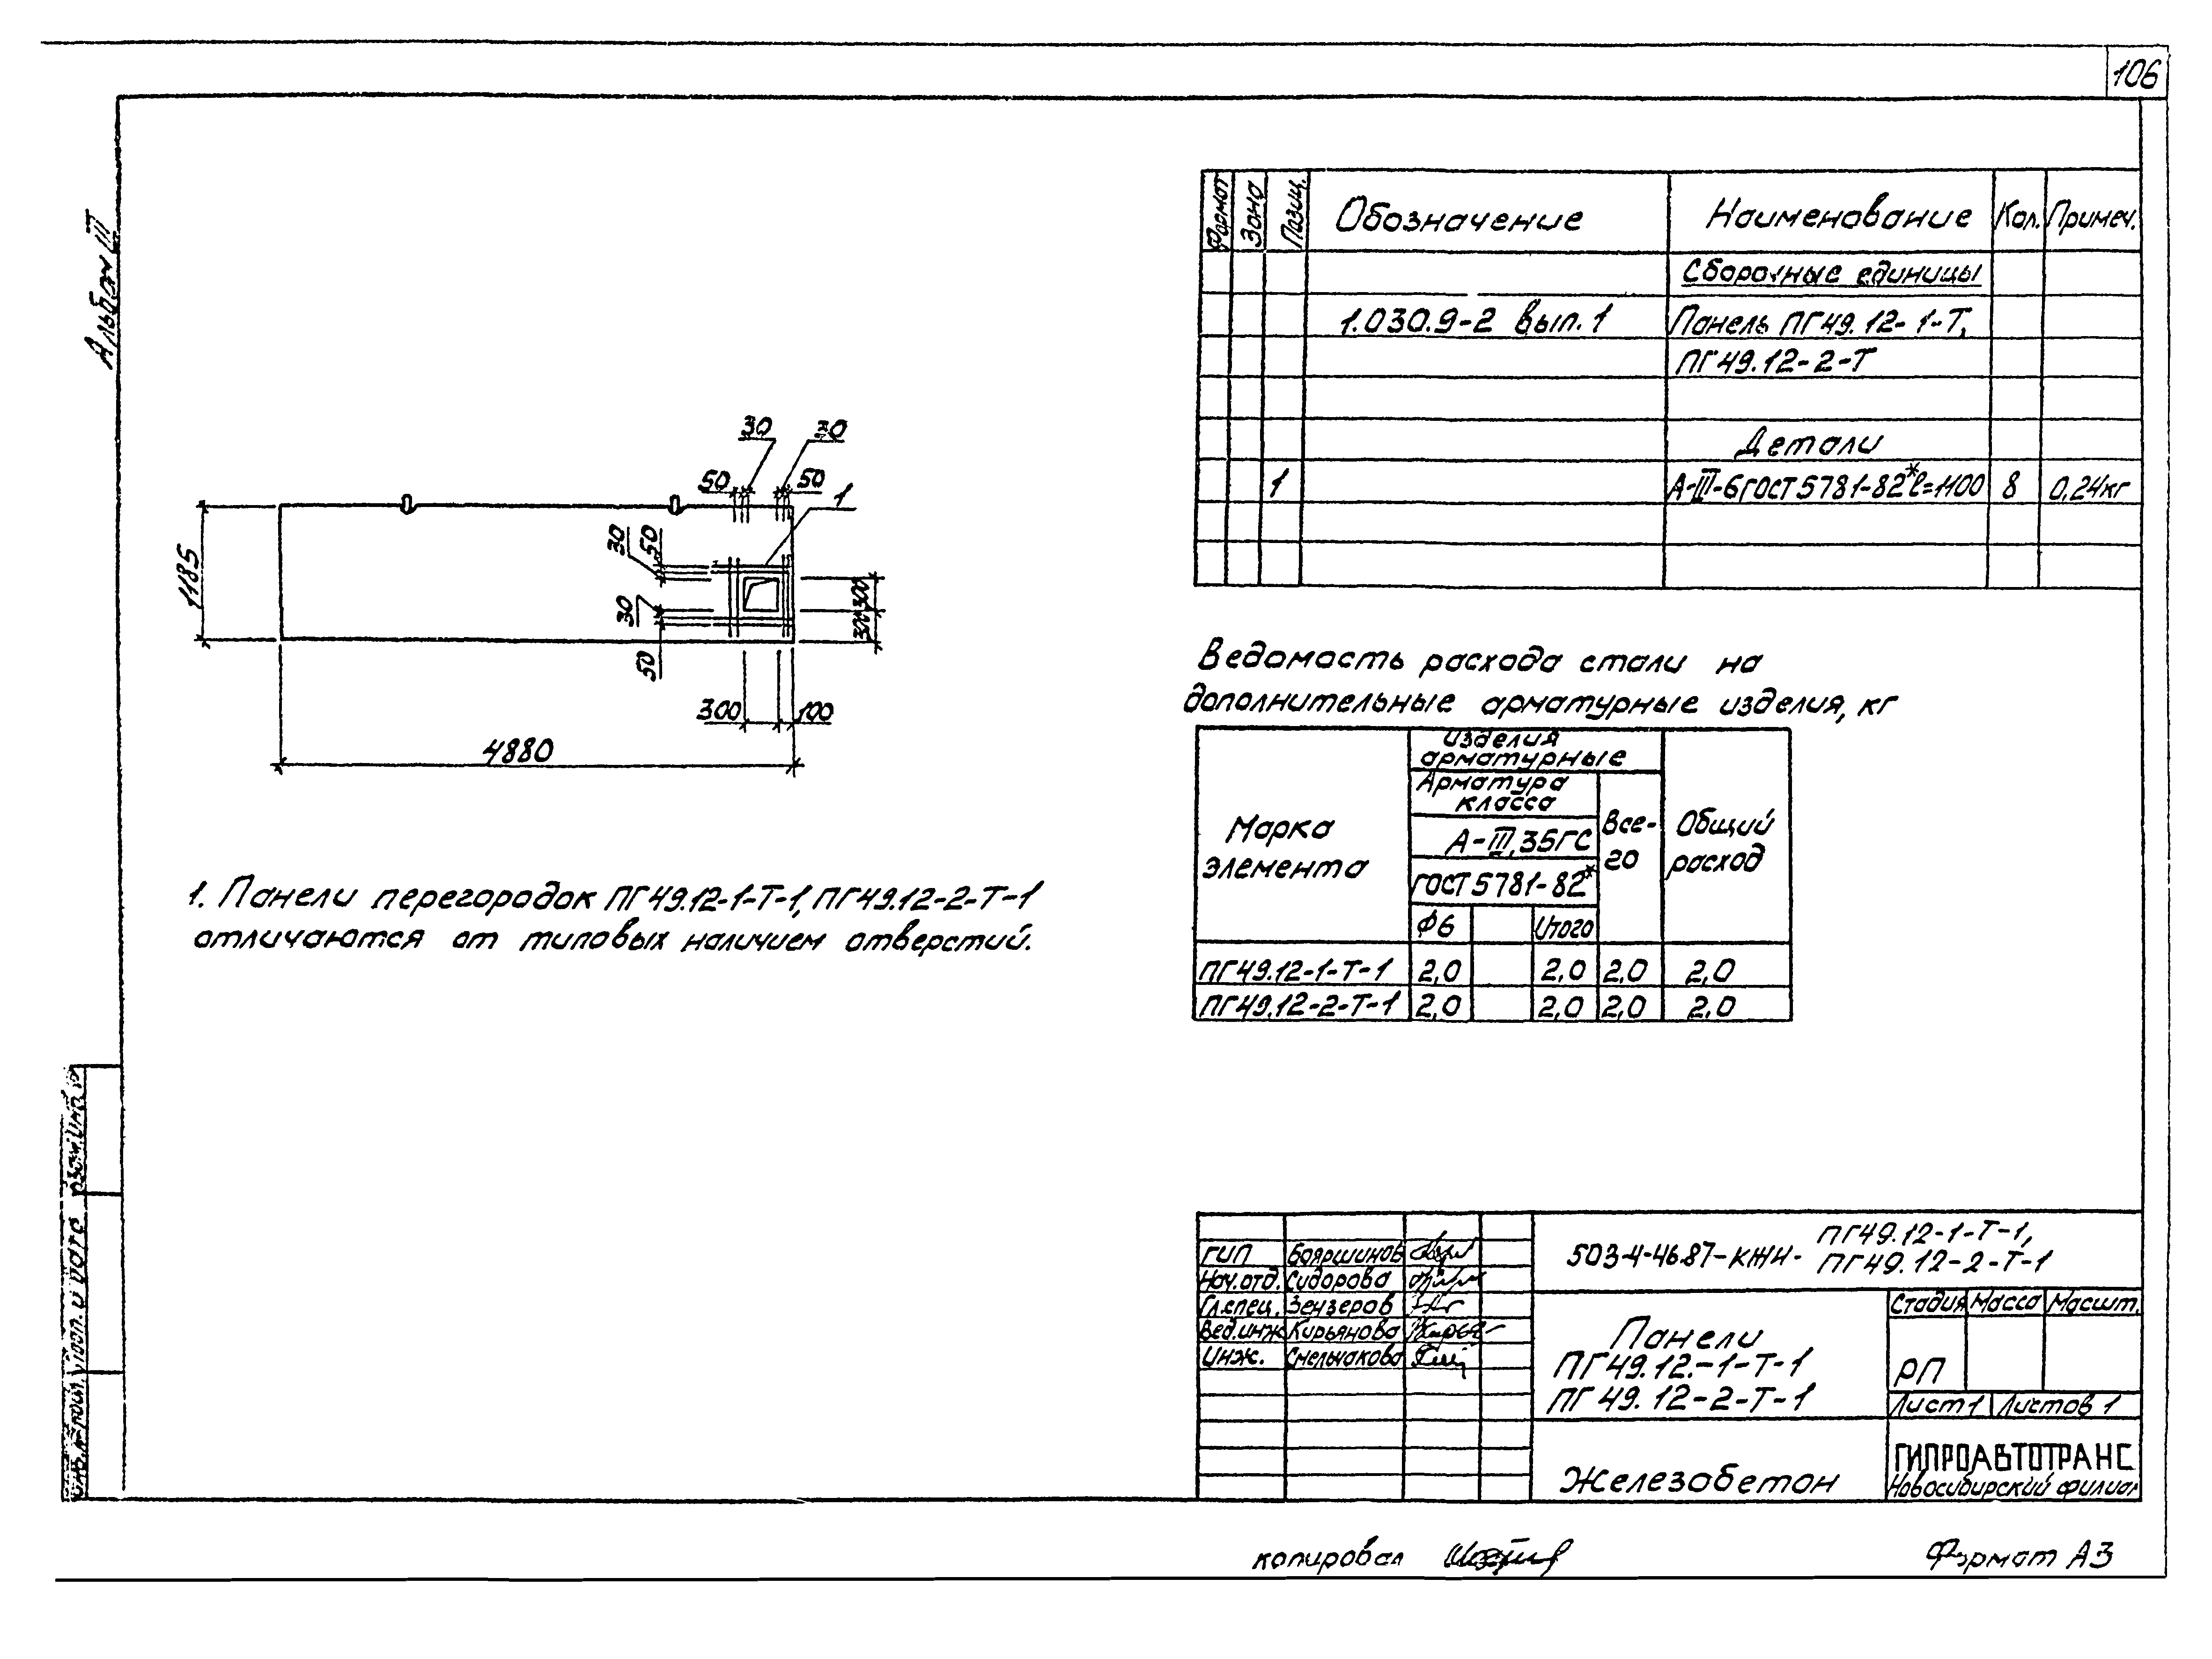 106
Альбом III
Формат Зона Позиц. Обозначение Наименование Кол. Примеч.
Сборочные единицы
1.030.9-2 вып. 1 Панель ПГ49.12-1-Т,
ПГ49.12-2-Т
Детали
1 А-III-6 ГОСТ 5781-82* ℓ=1100 8 0,24кг
30 30
50 50
1
30 50
1185
30
50
300 300
300 100
4880
1. Панели перегородок ПГ49.12-1-Т-1, ПГ49.12-2-Т-1
отличаются от типовых наличием отверстий.
Ведомость расхода стали на
дополнительные арматурные изделия, кг
Марка элемента
Изделия арматурные
Арматура класса
А-III, 35ГС
ГОСТ 5781-82*
Ф6 Итого
Всего
Общий расход
ПГ49.12-1-Т-1 2,0 2,0 2,0 2,0
ПГ49.12-2-Т-1 2,0 2,0 2,0 2,0
503-4-46.87-КЖИ- ПГ49.12-1-Т-1,
ПГ49.12-2-Т-1
ГИП Бояршинов
Нач.отд. Сидорова
Гл.спец. Зензеров
Вед.инж Кирьянова
Инж. Смельчакова
Панели
ПГ49.12.-1-Т-1
ПГ49.12-2-Т-1
Стадия Масса Масшт.
РП
Лист 1 Листов 1
Железобетон
ГИПРОАВТОТРАНС
Новосибирский филиал
подп. и дата
копировал
Формат А3